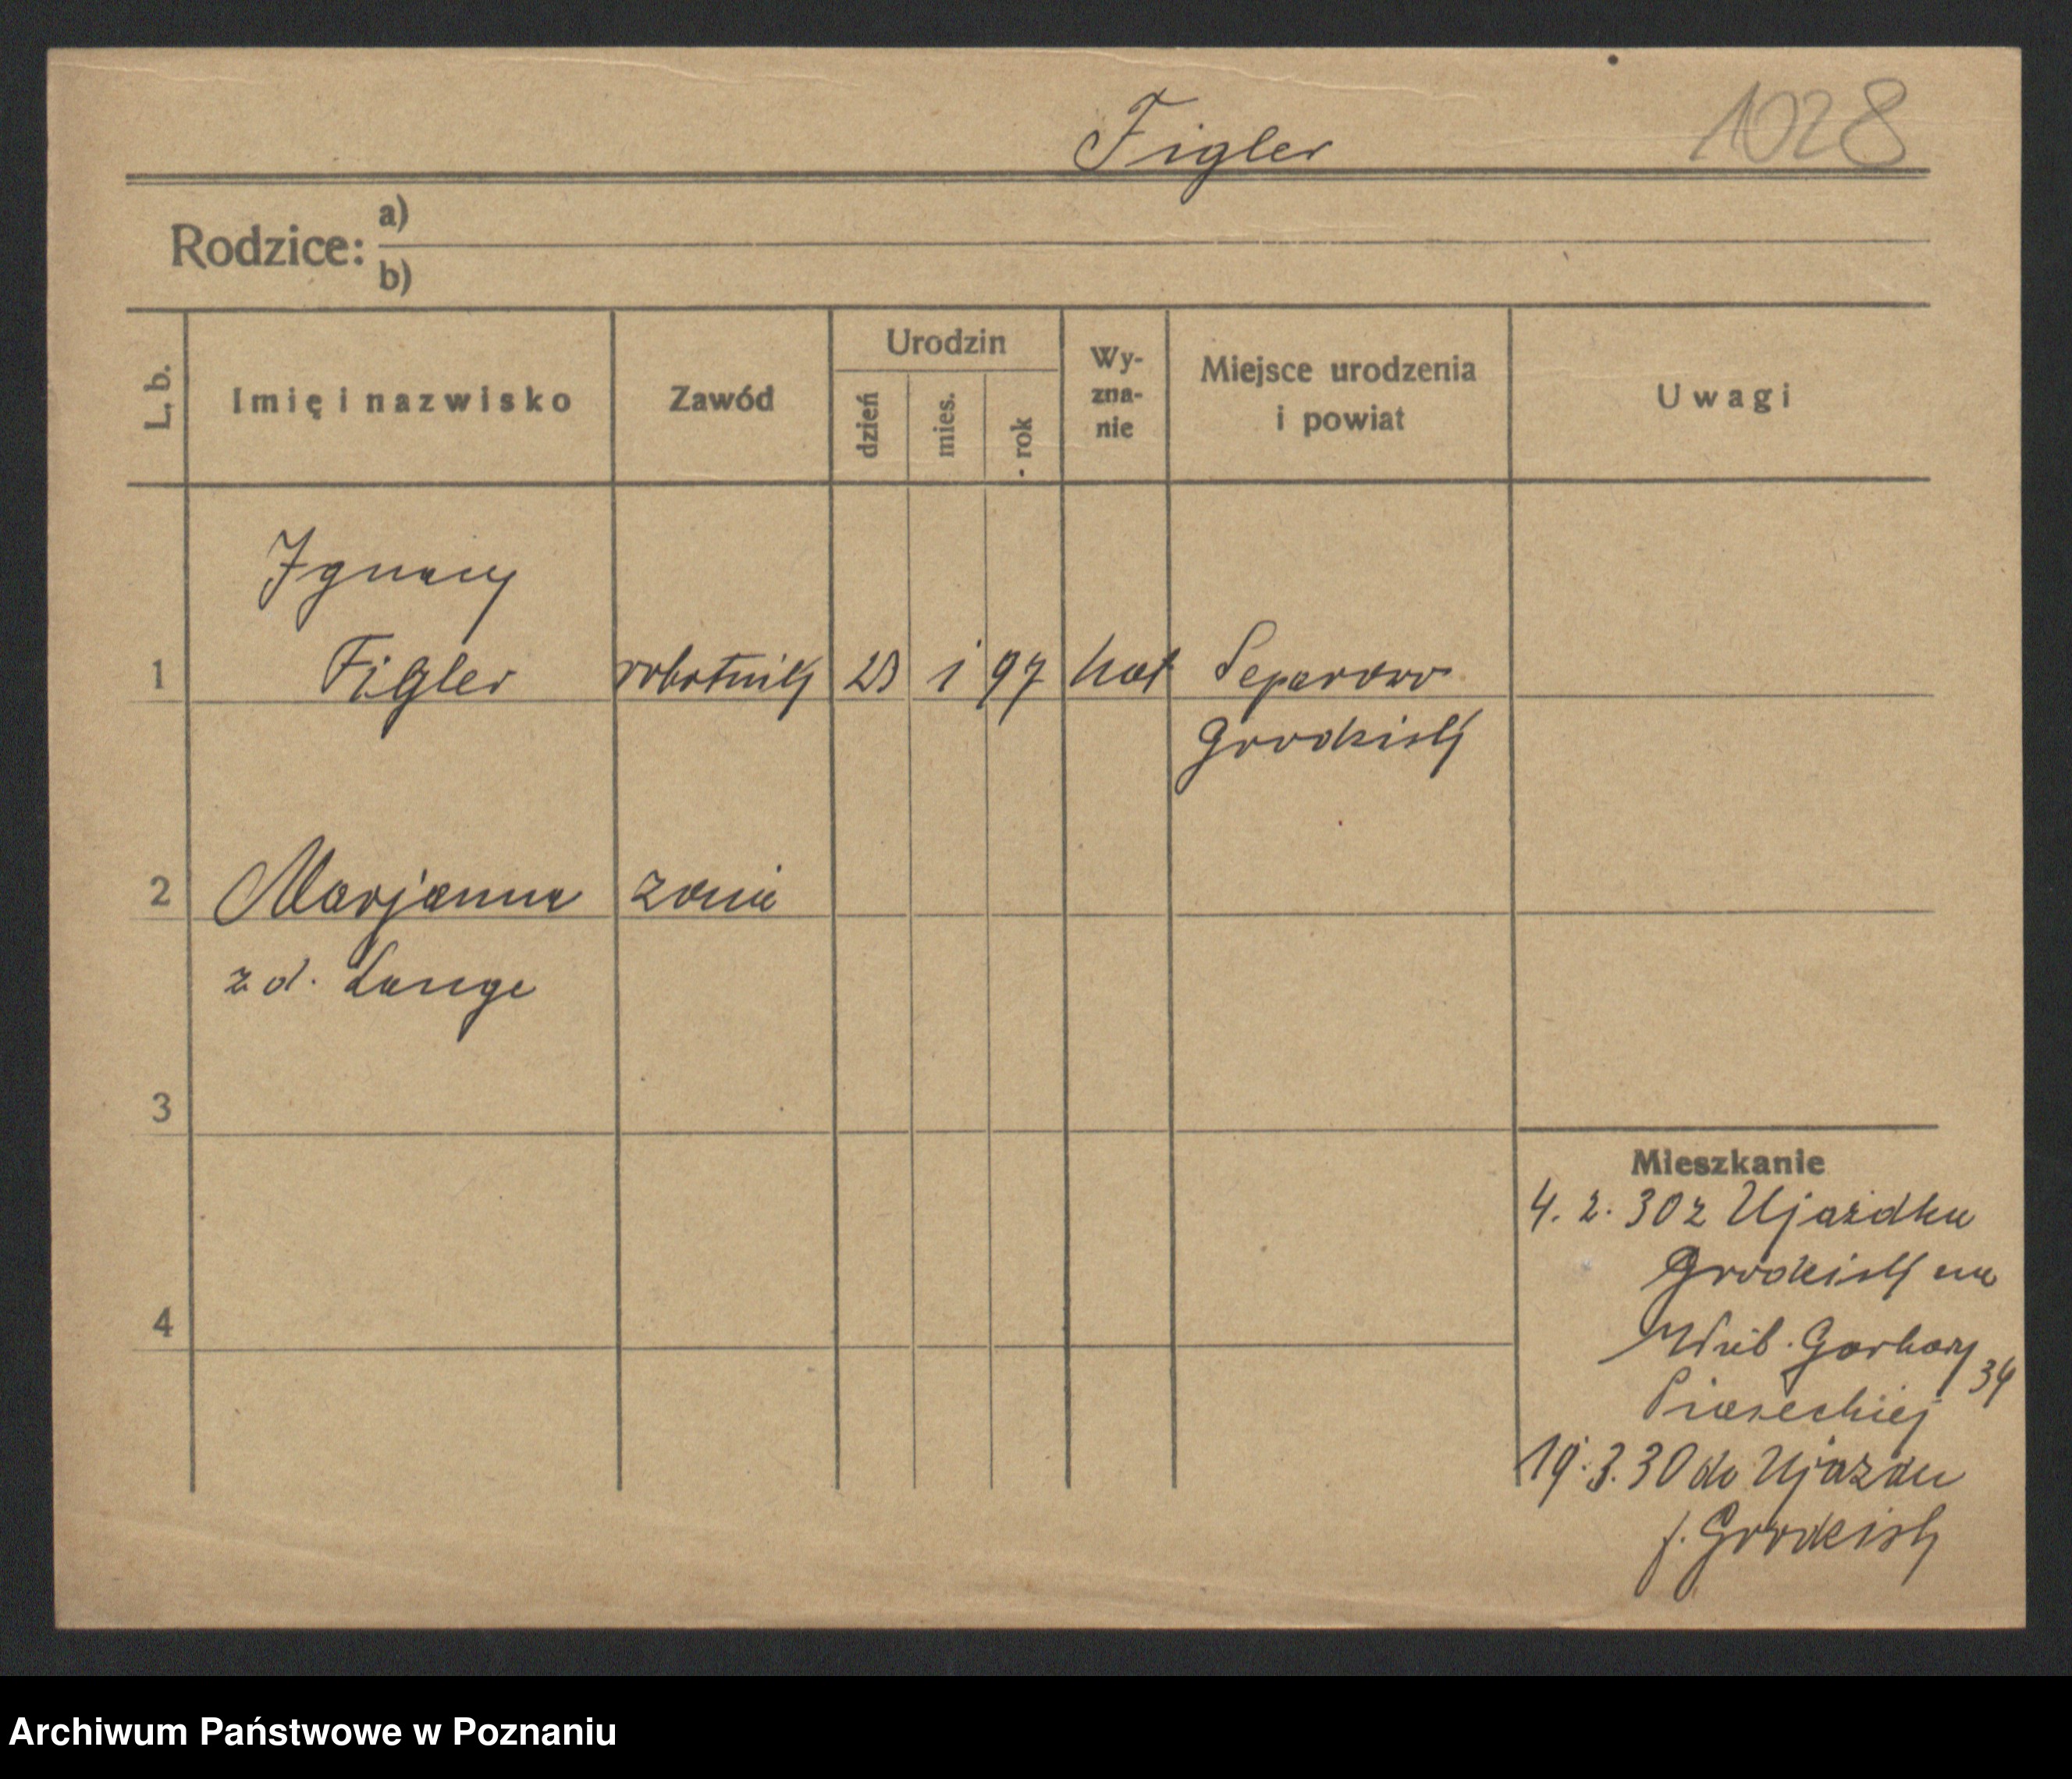 Figler 1028
Rodzice: a)
b)
L. b. Imię i nazwisko Zawód Urodzin dzień mies. rok Wy-zna-nie Miejsce urodzenia i powiat Uwagi
Ignacy
1 Figler robotnik 23 1 97 kat Separowo
Grodzisk
2 Marjanna żona
z d. Lange
3
Mieszkanie
4. 2. 30 z Ujazdku
Grodzisk na
4
Garbary 34
Piaseckiej
19. 3. 30 do Ujazdu
Grodzisk
Archiwum Państwowe w Poznaniu